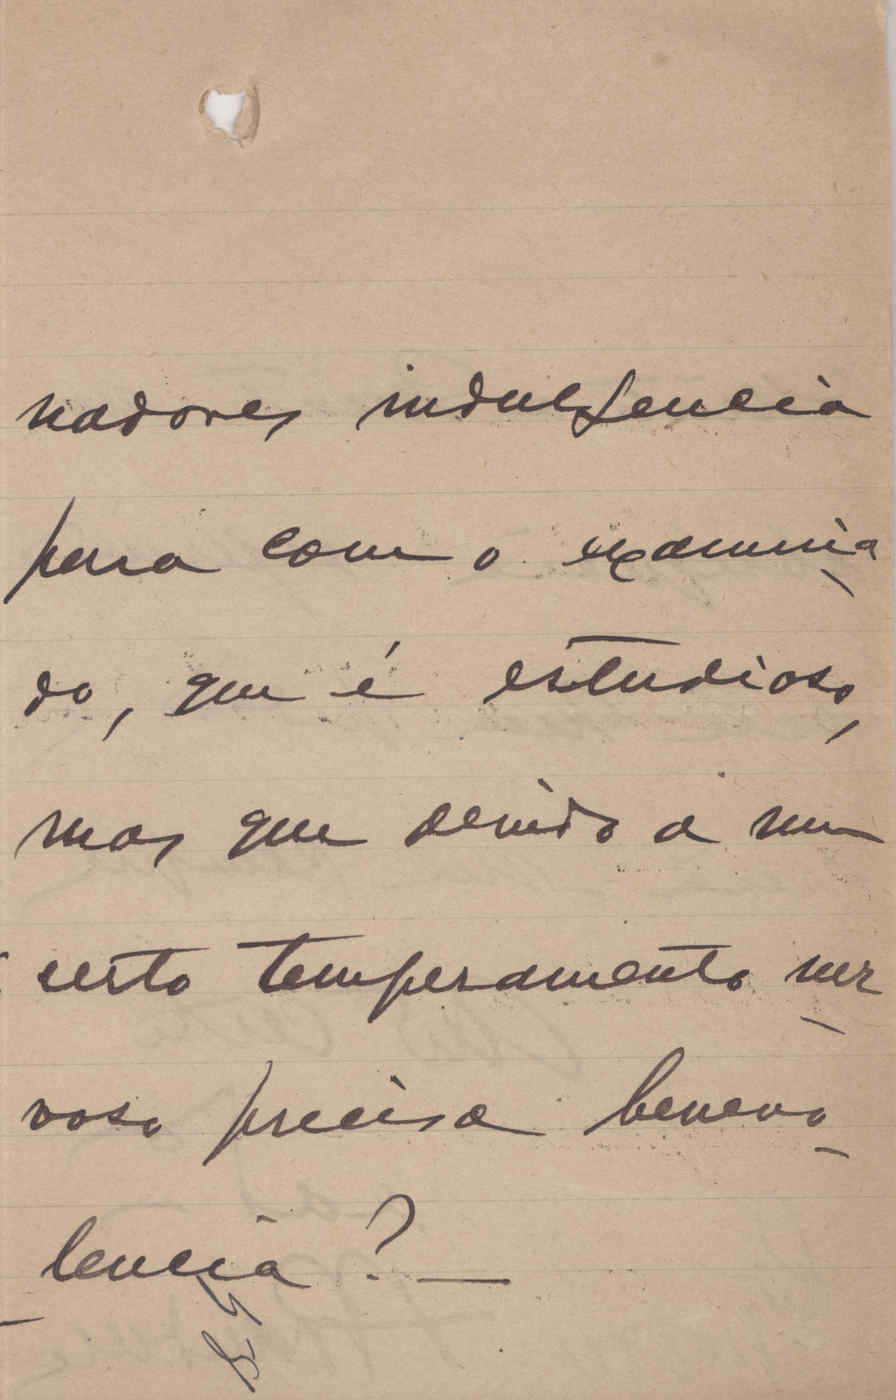 nadores indulgencia
para com o examina
do, que é estudioso,
mas que devido a um
certo temperamento ner
voso precisa benevo
lencia ? —